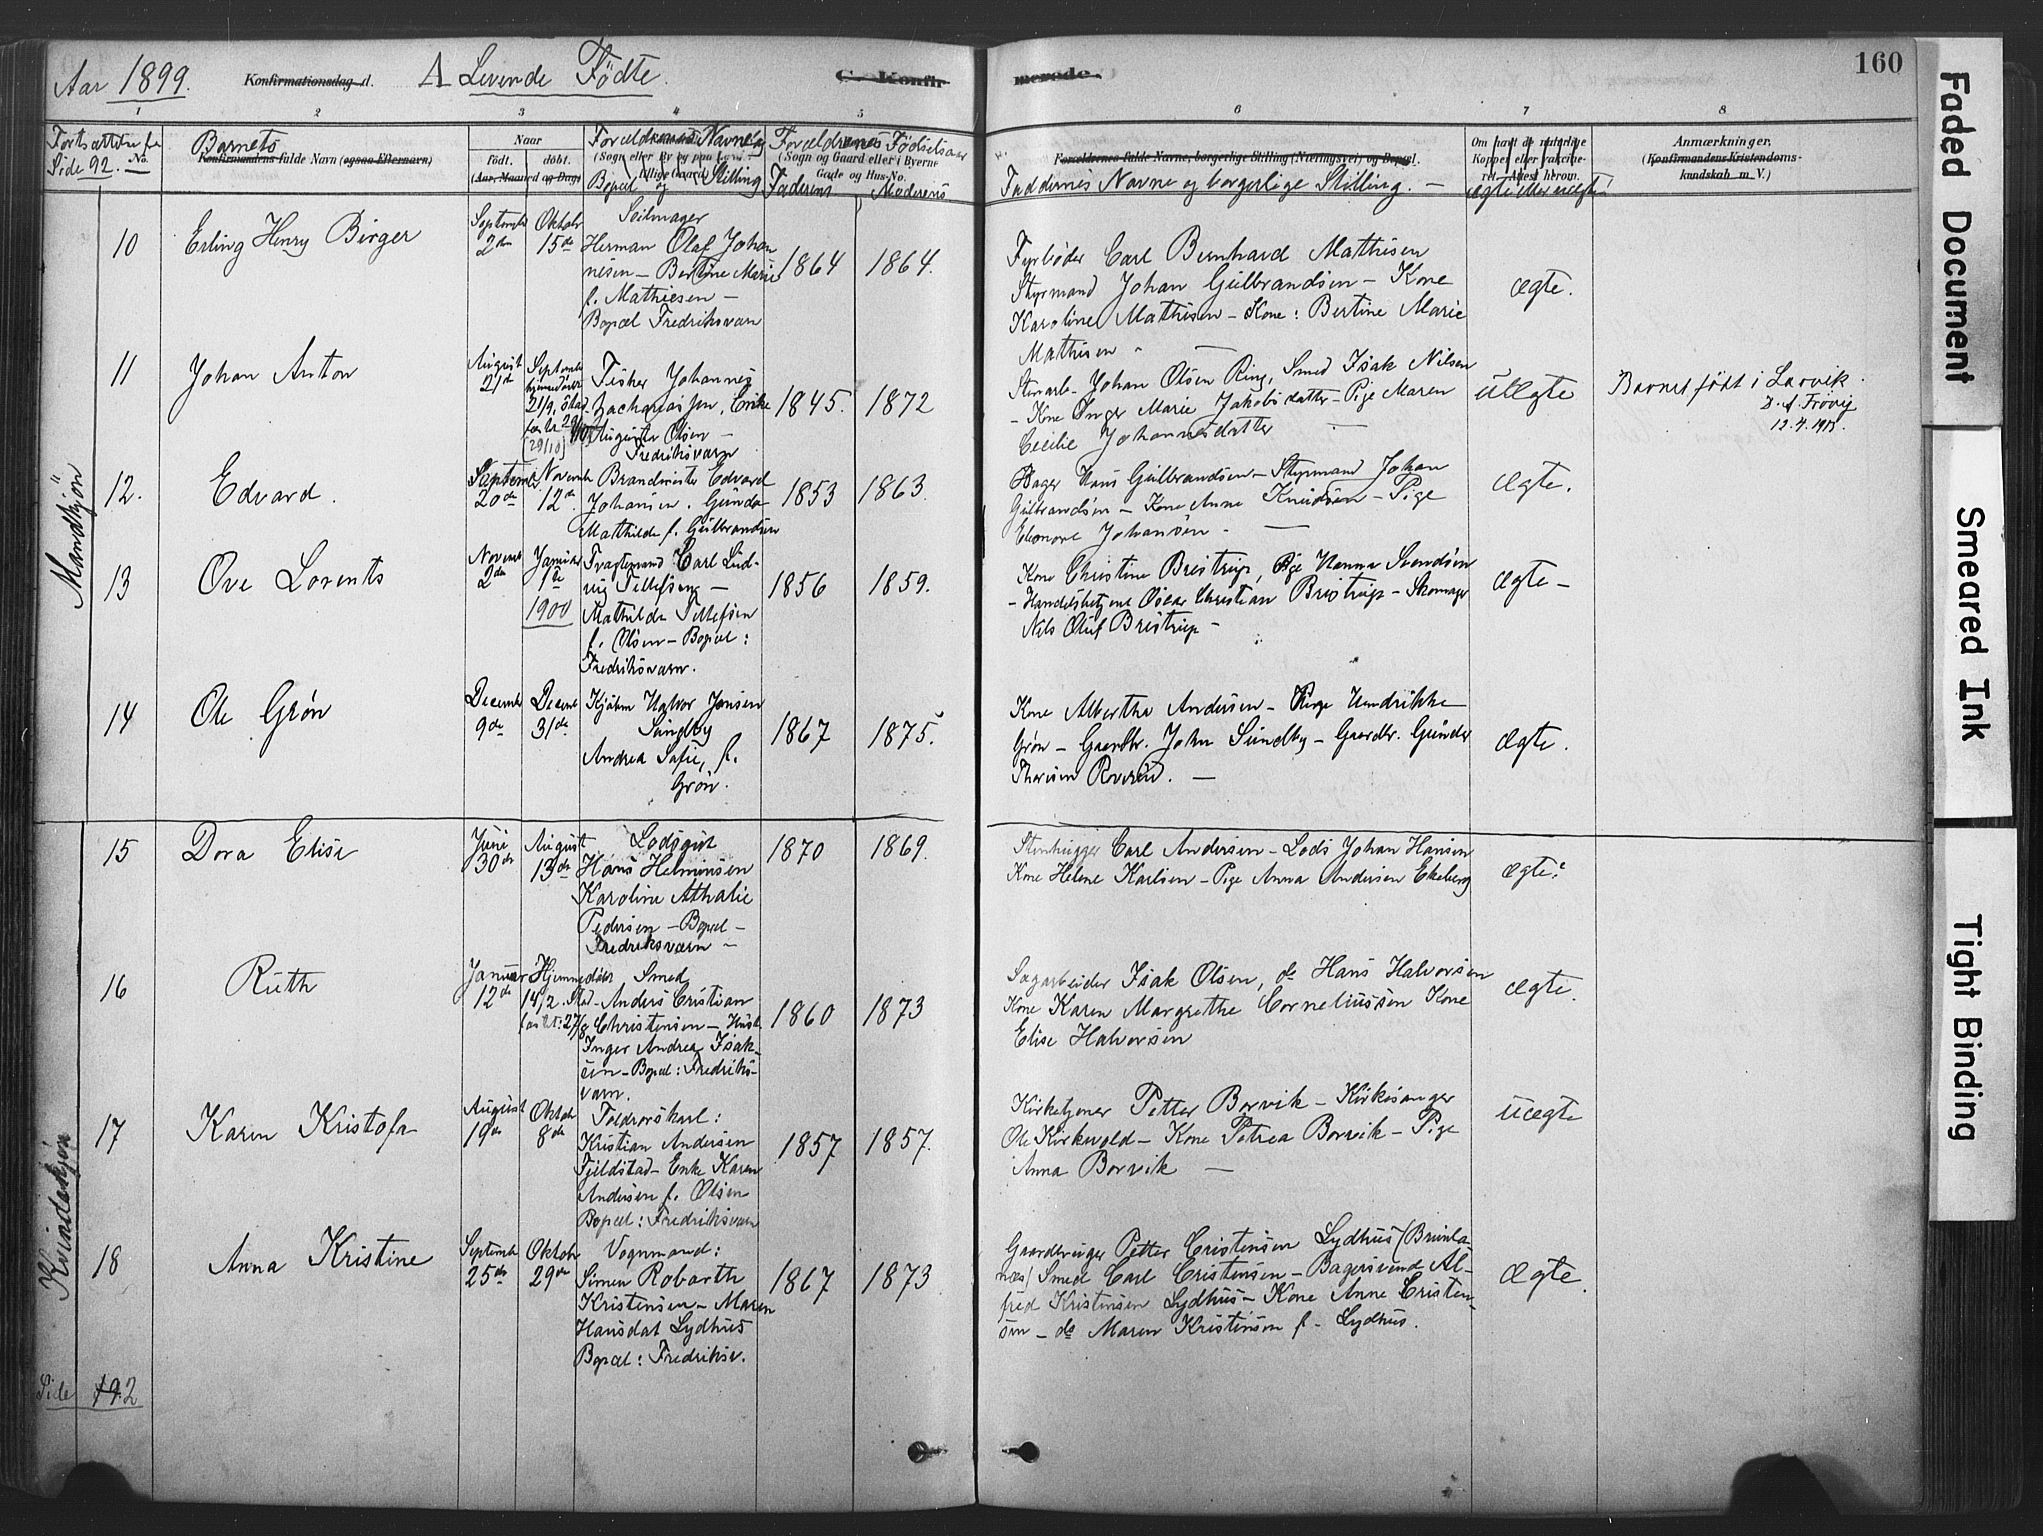 Aar 1899. Konfirmationsdag d. A Levende Fødte. C. Konfirmerede. 160
1 2 3 4 5 6 7 8
Fortsættelse fra Side 92. — No.
Barnets
Konfirmandens fulde Navn (ogsaa Efternavn)
Naar
født. døbt.
(Aar, Maaned og Dag)
Forældrenes Navne og
Bopæl og Stilling
Forældrenes Fødselsaar
(Sogn og Gaard eller i Byerne
Gade og Hus-No.
Faderens Moderens
Forældrenes fulde Navne, borgerlige Stilling (Næringsvei) og Bopæl.
Faddernes Navne og borgerlige Stilling. —
Om havt de naturlige
Kopper eller vaccine-
ret. Attest herom.
ægte eller uægte
Anmærkninger.
(Konfirmandens Kristendoms-
kundskab m. V.)
Mandkjøn
10 Erling Henry Birger
September 2den
Oktobr 15de
Seilmager
Herman Olaf Johan
nesen — Bertine Marie
f. Mathiesen —
Bopæl Fredriksværn
1864 1864.
Fyrbøder Carl Bernhard Mathisen
Styrmand Johan Gulbrandsen — Kone
Karoline Mathisen — Kone: Bertine Marie
Mathisen — —
ægte.
11 Johan Anton
August 21de
Septembr
hjemmedøbt
21/9, stad-
fæstet 29/10
[29/10]
Fisker Johannes
Zachariassen, Enke
Augusta Olsen —
Fredriksværn
1845. 1872
Stenarb. Johan Olsen Ring, Smed Isak Nilsen
— Kone Inger Marie Jakobsdatter — Pige Maren
Cecilie Johannesdatter —
uægte
Barnet født i Larvik.
D. A. Frøvig
12.4.1915.
12. Edvard.
September 20de
November 12de
Brandmester Edvard
Johansen. Gunda
Mathilde f. Gulbrandsen
1853 1863.
Hans Gulbrandsen — Styrmand Johan
Gulbrandsen — Kone Anne Knudsen — Pige
Eleonore Johansen — —
ægte.
13 Ove Lorents
Novemb 2den
Januar 1ste
1900
Fragtemand Carl Lud-
vig Tellefsen —
Mathilde Tellefsen
f. Olsen — Bopæl:
Fredriksværn.
1856 1859.
Kone Christine Bristrup, Pige Hanna Svendsen
— Handelsbetjent Oscar Christian Bristrup — Skomager
Nils Oluf Bristrup —
ægte —
14 Ole Grøn
Decembr 9de
Decemb 31de
Kjøbm Halvor Jensen
Sundby
Andrea Sofie, f.
Grøn.
1867 1875.
Kone Albertha Andersen — Pige Hendrikke
Grøn — Gaardbr. John Sundby — Gaardbr. Gunder
Thorsen Roverud. —
ægte.
Kvindekjøn
15 Dora Elise
Juni 30de
August 13de
Lodsgut
Hans Helminsen
Karoline Athalie
Pedersen — Bopæl —
Fredriksværn —
1870 1869.
Stenhugger Carl Andersen — Lods Johan Hansen
Kone Helene Karlsen — Pige Anna Andersen Ekeberg
ægte.
16 Ruth
Januar 12de
Hjemmedøbt
14/2 Stad-
fæstet: 27/8
Smed
Anders Cristian
Christensen — Hust.
Inger Andrea Isak-
sen — Bopæl: Fredriks-
værn.
1860 1873
Sagarbeider Isak Olsen, do Hans Halvorsen
Kone Karen Margrethe Corneliussen Kone
Elise Halvorsen
ægte.
17 Karen Kristofa
August 19de
Oktobr 8de
Toldrorskarl:
Kristian Andersen
Fjeldstad — Enke Karen
Andersen f. Olsen
Bopæl: Fredriksværn
1857 1857.
Kirketjener Petter Borvik — Kirkesanger
Ole Kirkevold — Kone Petrea Borvik — Pige
Anna Borvik —
uægte
18 Anna Kristine
September 25de
Oktobr 29de
Vognmand:
Simen Robarth
Kristensen — Maren
Hansdat Lydhus
Bopæl: Fredriksv.
1867 1873
Gaardbruger Petter Cristensen Lydhus (Brunla-
næs) Smed Carl Cristensen — Bagersvend Al-
fred Kristensen Lydhus — Kone Anne Cristen-
sen — do Maren Kristensen f. Lydhus.
Ægte.
Side 192
Faded Document
Smeared Ink
Tight Binding